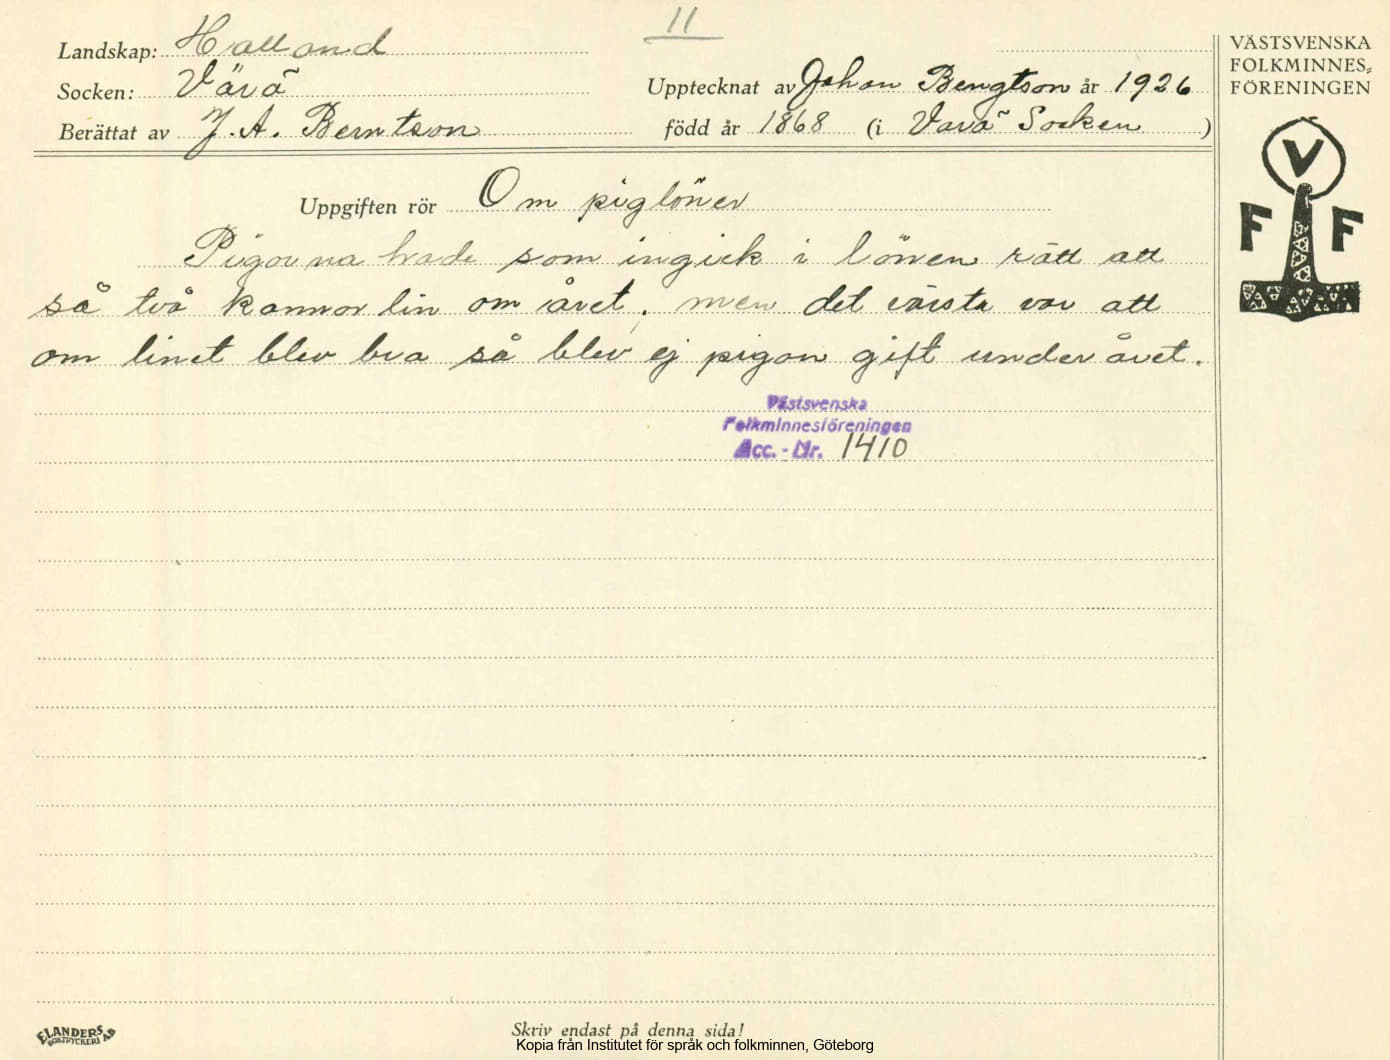 11
Landskap: Halland
Socken: Värö
Upptecknat av Johan Bengtson år 1926
Berättat av J. A. Berntson
född år 1868 (i Varö Socken)
VÄSTSVENSKA
FOLKMINNES=
FÖRENINGEN
V
F F
Uppgiften rör Om piglöner
Pigorna hade som ingick i lönen rätt att
så två kannor lin om året, men det värsta var att
om linet blev bra så blev ej pigan gift under året.
Västsvenska
Folkminnesföreningen
Acc. - Nr. 1410
ELANDERS
BOKTRYCKERI AB
Skriv endast på denna sida!
Kopia från Institutet för språk och folkminnen, Göteborg